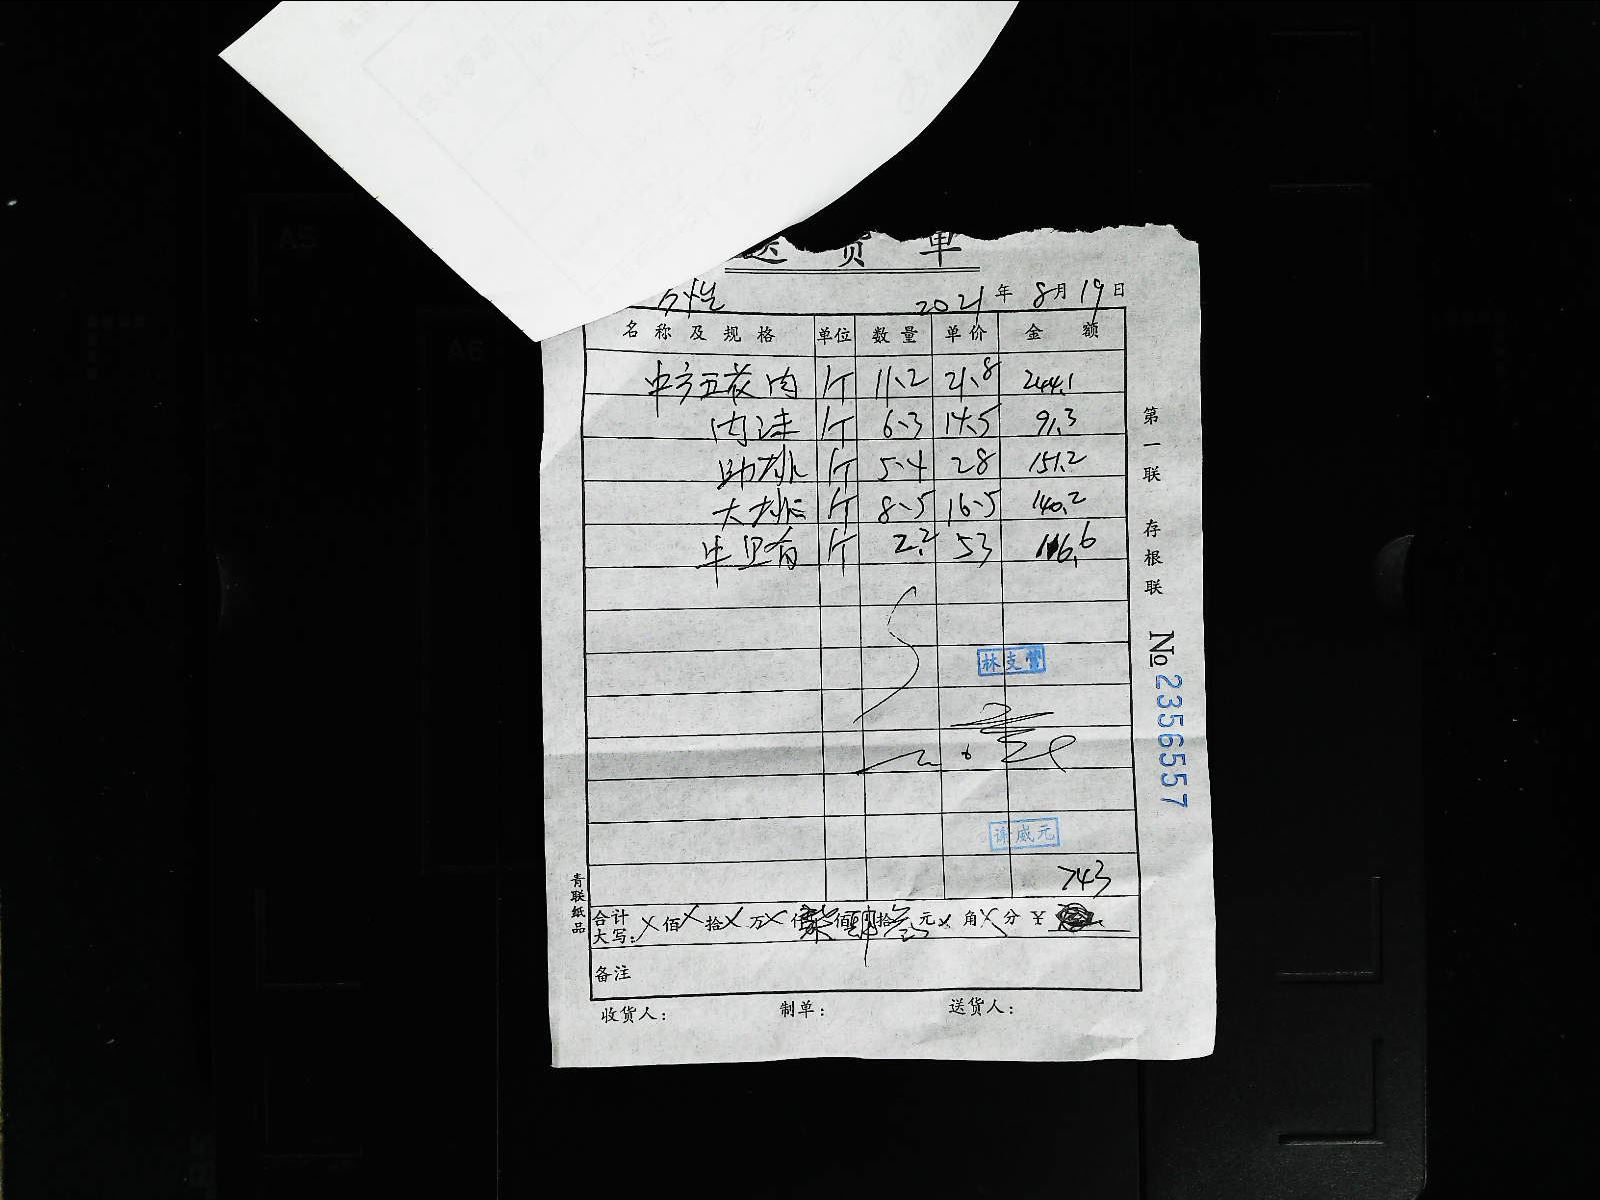 送货单
2021年8月19日
名称及规格 单位 数量 单价 金额
中方五花肉 斤 11.2 21.8 244.1
肉沫 斤 6.3 14.5 91.3
肋排 斤 5.4 28 151.2
大排 斤 8.5 16.5 140.2
斤 2.2 53 116.6
林支萱
谢威元
743
合计大写: X佰X拾X万X仟柒佰肆拾叁元X角X分 ¥
备注
收货人: 制单: 送货人:
第一联 存根联
No 2356557
青联纸品